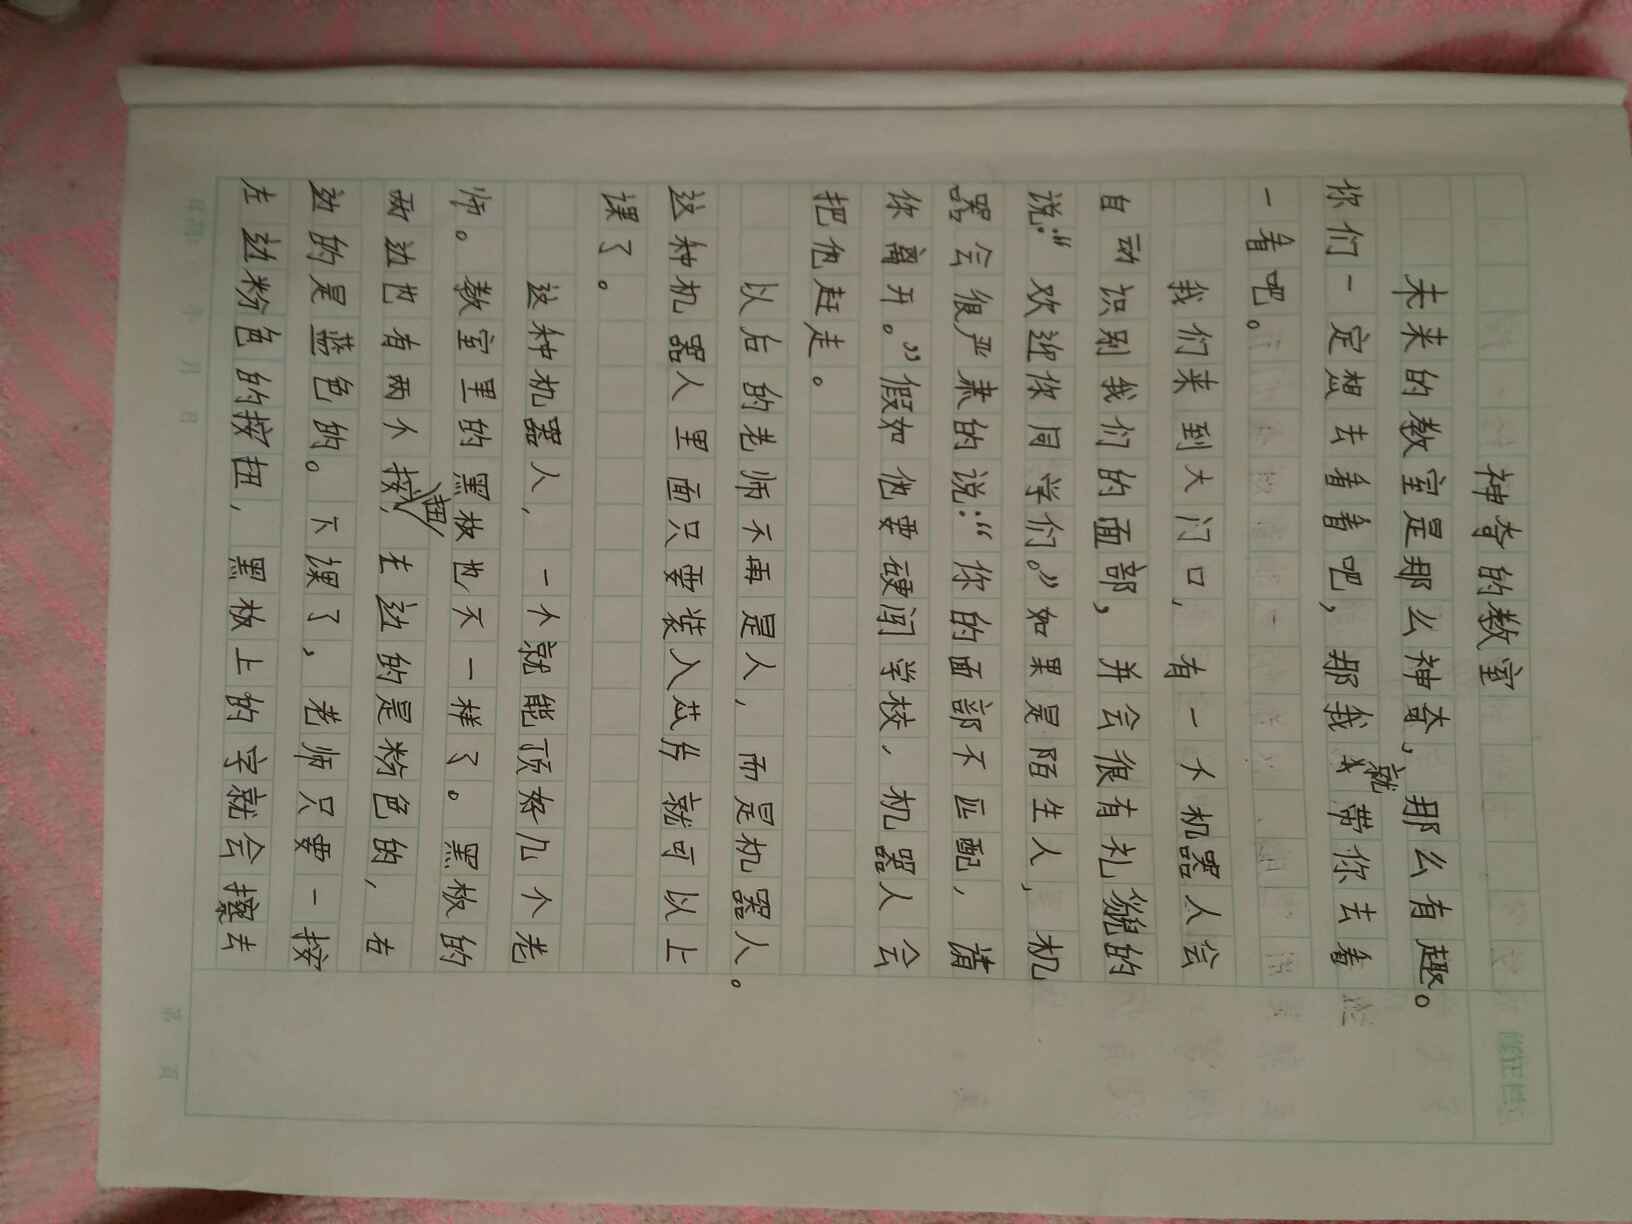 神奇的教室
未来的教室是那么神奇，那么有趣。
你们一定想去看看吧，那我就带你去看
一看吧。
我们来到大门口，有一个机器人会
自动识别我们的面部，并会很有礼貌的
说：“欢迎你同学们。”如果是陌生人，机
器会很严肃的说：“你的面部不匹配，请
你离开。”假如他要硬闯学校，机器人会
把他赶走。
以后的老师不再是人，而是机器人。
这种机器人里面只要装入芯片就可以上
课了。
这种机器人，一个就能顶好几个老
师。教室里的黑板也不一样了。黑板的
两边也有两个按钮，左边的是粉色的，右
边的是蓝色的。下课了，老师只要一按
左边粉色的按扭，黑板上的字就会擦去
年 月 日
第 页